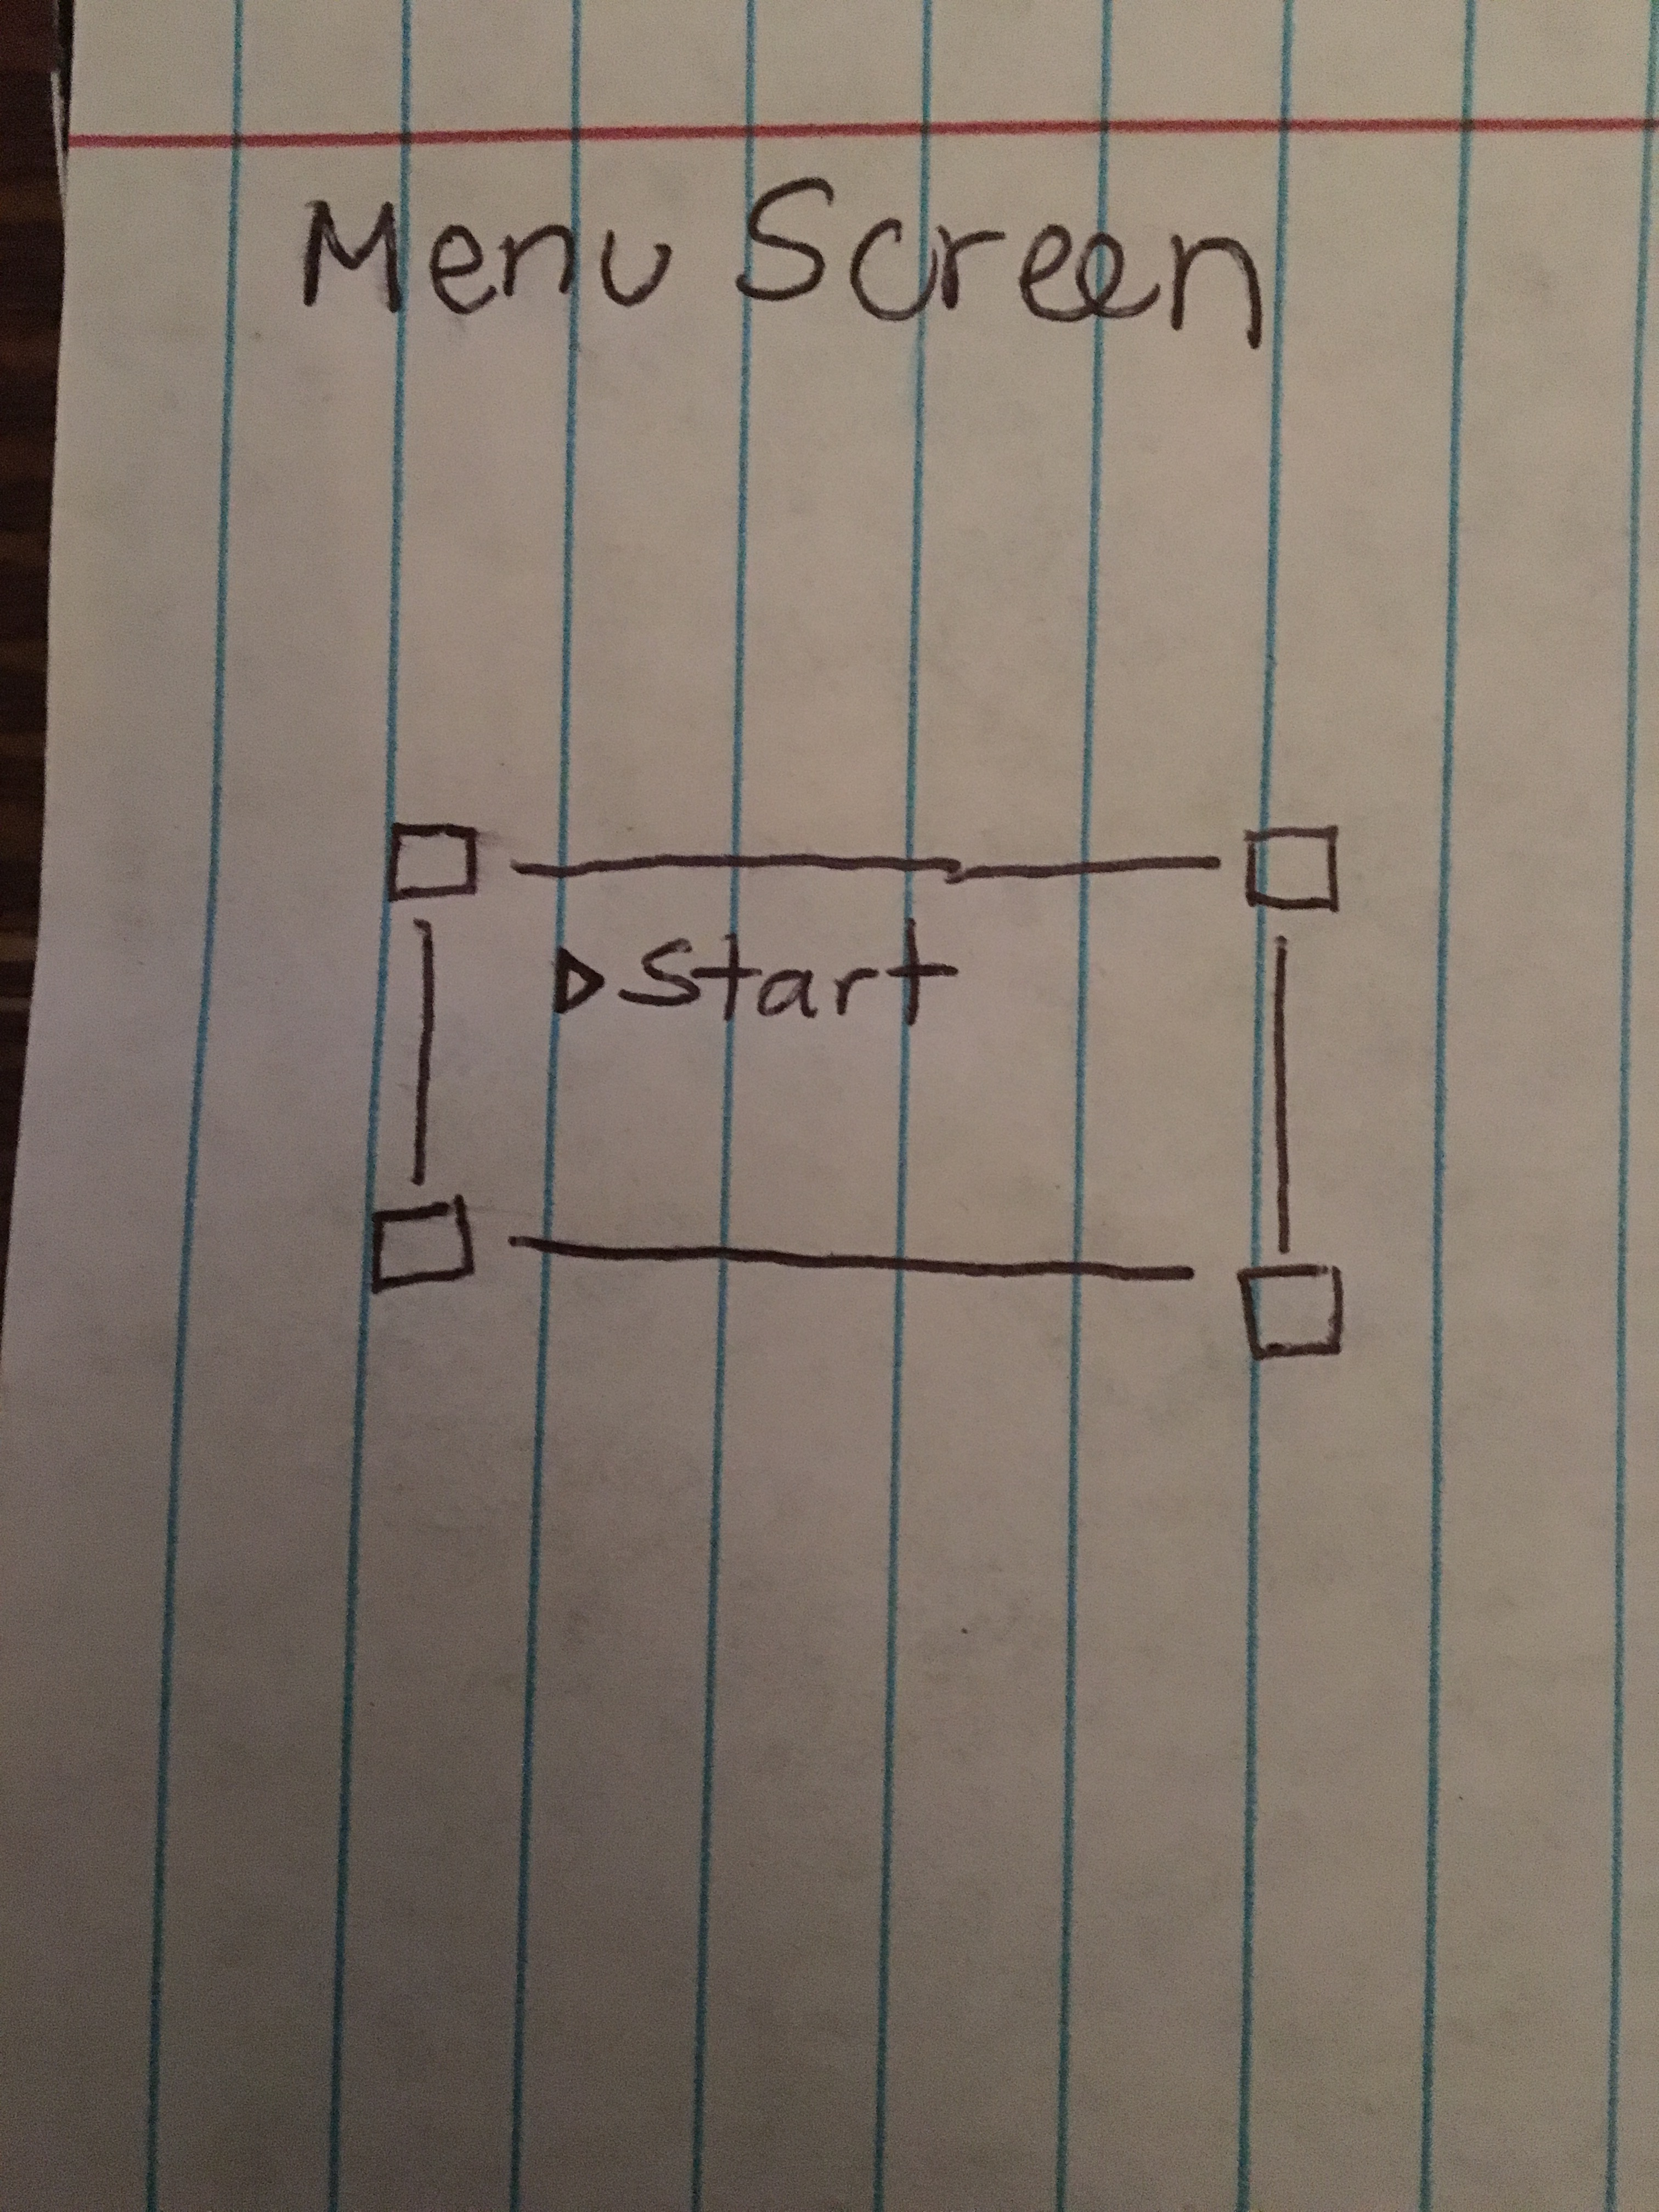 Menu Screen
▷Start